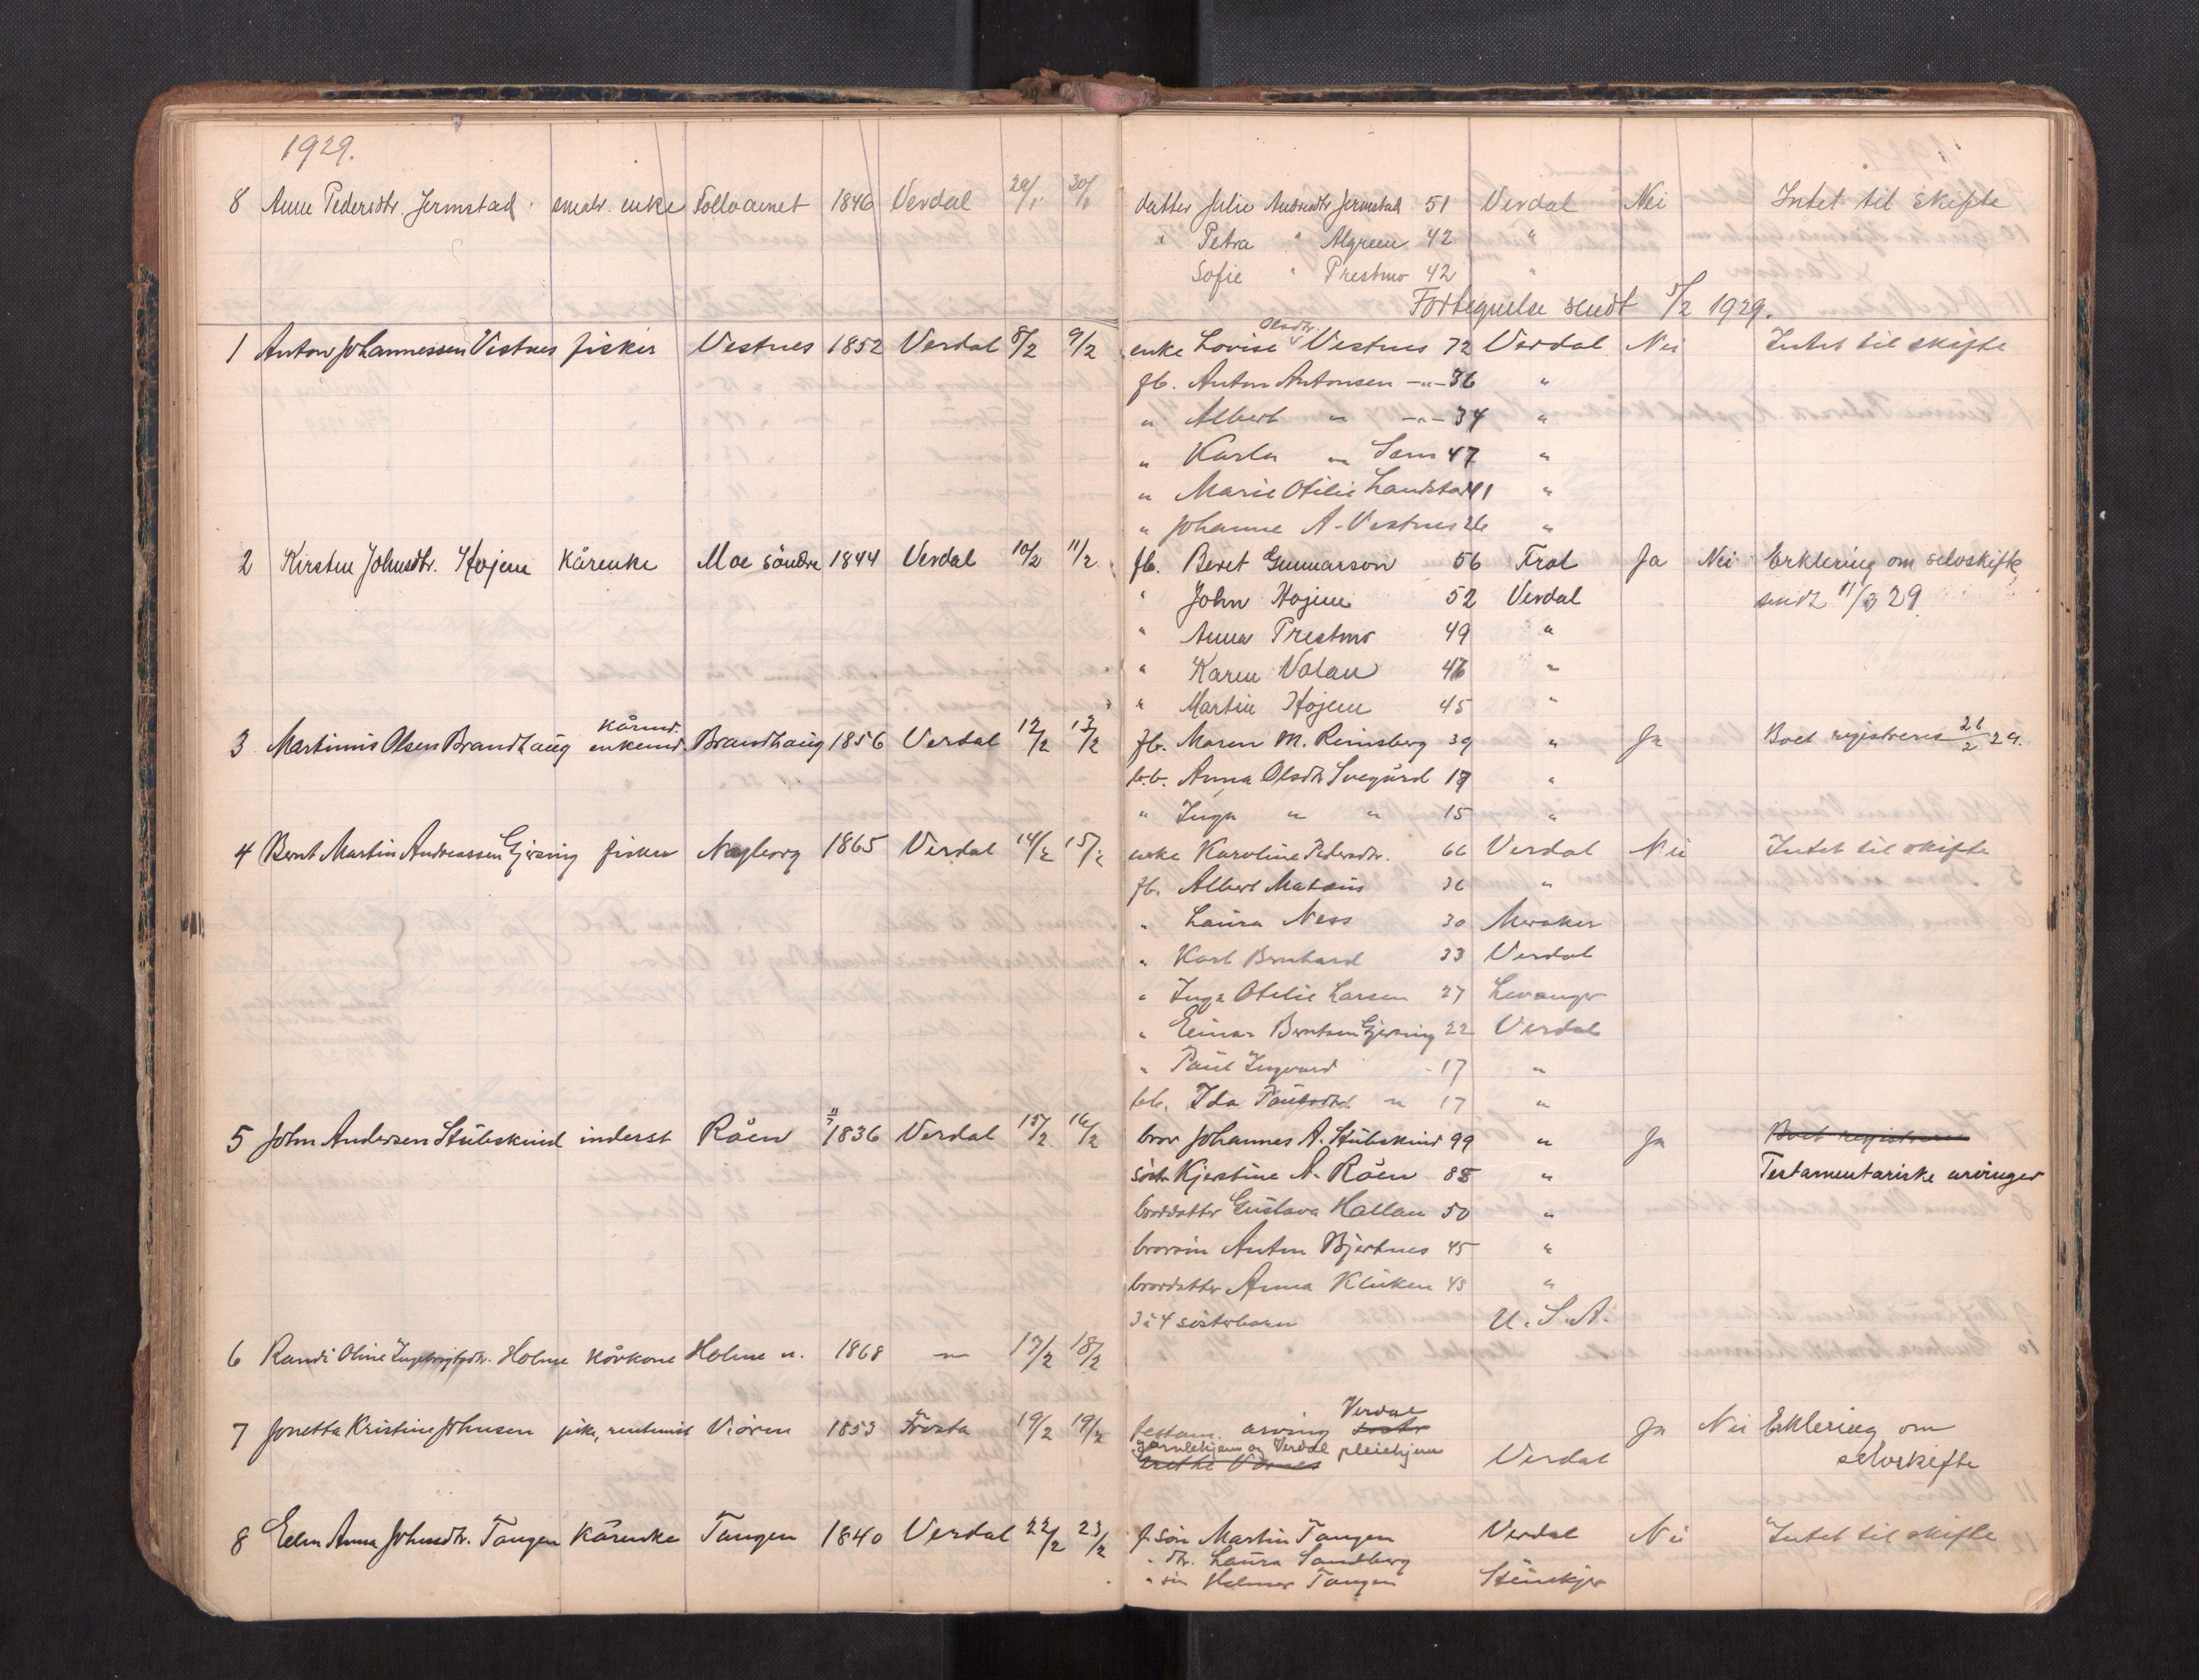 1929.
8 Anne Pedersdtr. Jermstad smabr. enke Follvaernet 1846 Verdal 29/1 30/1 datter Julie Andreasdtr. Jermstad 51 Verdal Nei Intet til skifte
" Petra " Algreen 42 "
Sofie " Prestmo 42 "
Fortegnelse sendt 5/2 1929.
1 Anton Johannessen Vestnes fisker Vestnes 1852 Verdal 8/2 9/2 enke Lovise Olsdtr. Vestnes 72 Verdal Nei Intet til skifte
fb. Anton Antonsen -"- 36 "
" Albert " -"- 34 "
" Karla " Sem 47 "
" Marie Otilie Landstad 41 "
" Johanne A. Vestnes 26 "
2 Kirsten Johnsdtr. Hojem Kårenke Moe söndre 1844 Verdal 10/2 11/2 fb. Beret Gunnarson 56 Frol Ja Nei Erklering om selvskifte
" John Hojem 52 Verdal sendt 11/3 29
" Anna Prestmo 49 "
" Karen Volan 47 "
" Martin Hojem 45 "
3 Martinus Olsen Brandhaug kårmd. enkemd. Brandhaug 1856 Verdal 12/2 13/2 fb. Maren M. Rinsberg 39 " Ja Boet registreres 26/2 29.
b.b. Anna Olsdtr Svegård 17 "
" Inga " " 15 "
4 Bernt Martin Andreassen Gjersing fisker Nagborg 1865 Verdal 14/2 15/2 enke Karoline Pedersdtr. 66 Verdal Nei Intet til skifte
fb. Albert Mataus 36 "
" Laura Ness 30 Meraker
" Karl Bernhard 33 Verdal
" Inga Otelie Larsen 27 Levanger
" Einar Berntsen Gjersing 22 Verdal
" Paul Ingvard - 17 "
bb. Ida Paulsdtr. " 17 "
5 John Andersen Stubskind inderst Råen 11/7 1836 Verdal 15/2 16/2 bror Johannes A. Stubskind 99 " Ja Boet registreres
söster Kjerstine A. Råen 88 " Testamentariske arvinger
brordatter Gustava Hallan 50 "
brorsön Anton Bjertnes 45 "
brordatter Anna Kluken 43 "
3 à 4 sösterbarn U.S.A.
6 Randi Oline Ingebrigtsdtr. Holme Kårkone Holme n. 1868 " 17/2 18/2
7 Jonetta Kristine Johnsen pike, rentenist Viören 1853 Frosta 19/2 19/2 testam. arving Verdal Ja Nei Erklering om
gamlehjem og Verdal pleiehjem Verdal selvskifte
8 Elen Anna Johnsdtr. Tangen Kårenke Tangen 1840 Verdal 22/2 23/2 f. sön Martin Tangen Verdal Nei Intet til skifte
" dtr. Laura Sandberg
" sön Helmer Tangen Stenkjer